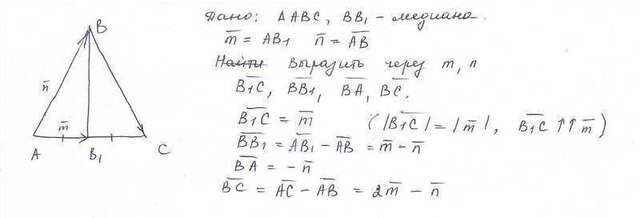 Дано: ΔABC, BB₁ - медиана.
m̅ = AB₁ n̅ = A̅B̅
Найти Выразить через m, n
B̅₁C̅, B̅B̅₁, B̅A̅, B̅C̅.
B̅₁C̅ = m̅ (|B̅₁C̅| = |m̅|, B̅₁C̅ ↑↑ m̅)
B̅B̅₁ = A̅B̅₁ - A̅B̅ = m̅ - n̅
B̅A̅ = -n̅
B̅C̅ = A̅C̅ - A̅B̅ = 2m̅ - n̅
B
n̅
m̅
A B₁ C